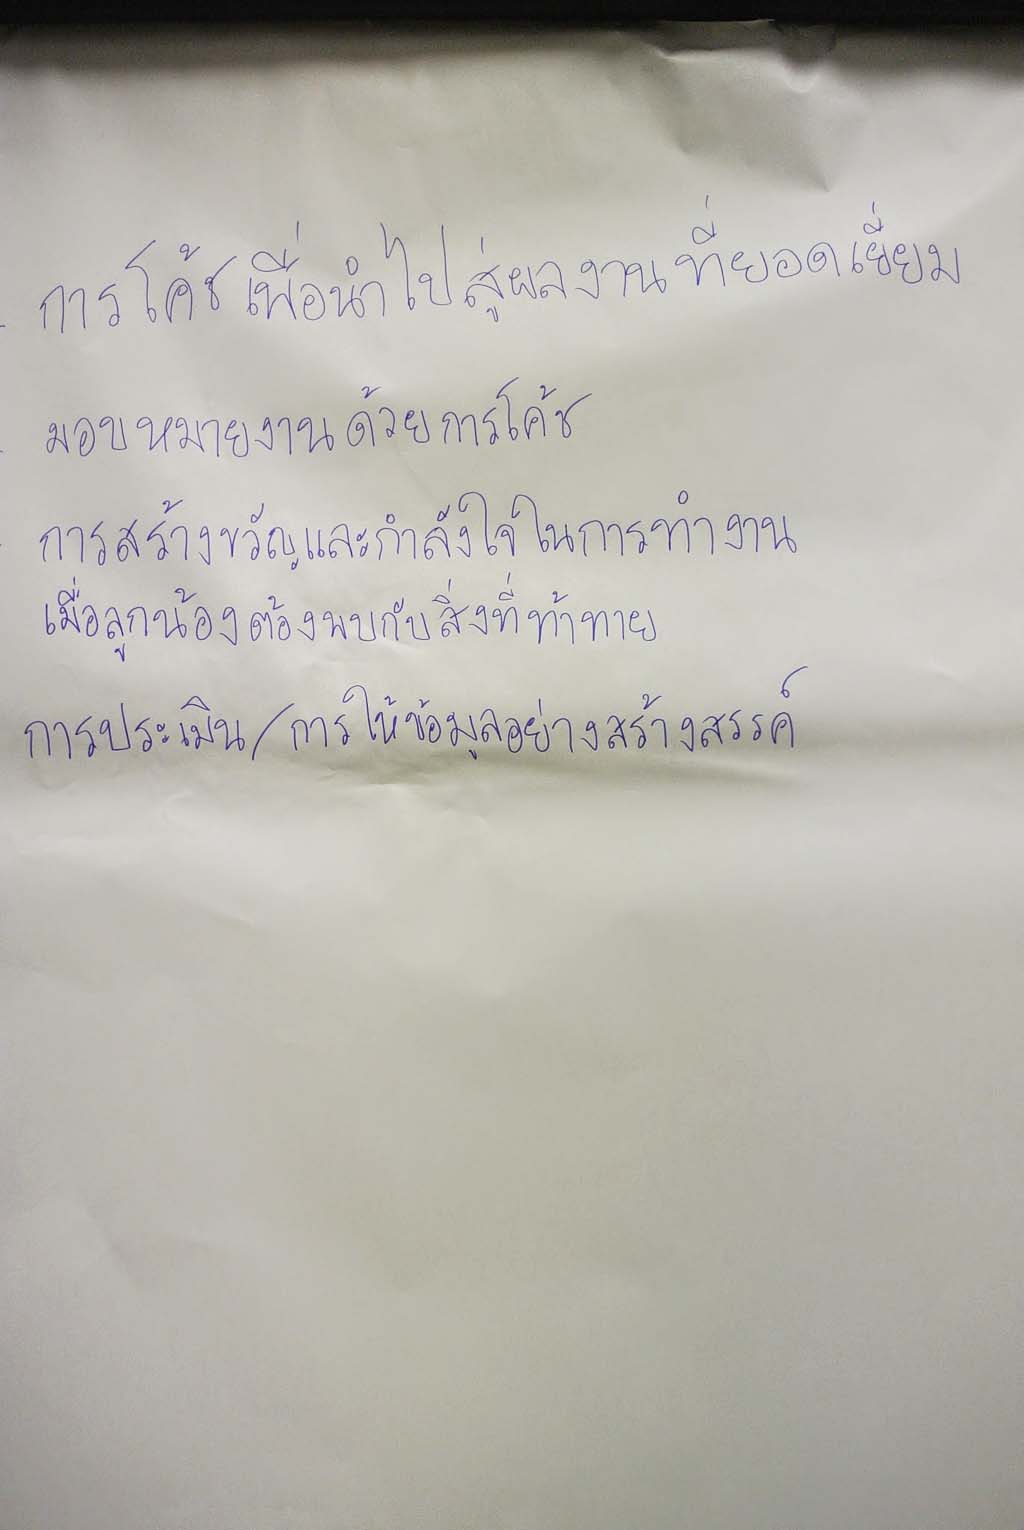 - การโค้ชเพื่อนำไปสู่ผลงานที่ยอดเยี่ยม
- มอบหมายงานด้วยการโค้ช
- การสร้างขวัญและกำลังใจในการทำงาน
เมื่อลูกน้องต้องพบกับสิ่งที่ท้าทาย
การประเมิน/การให้ข้อมูลอย่างสร้างสรรค์